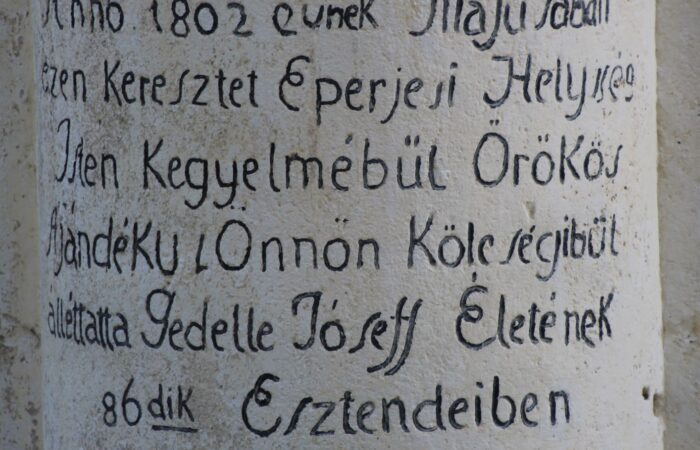 Anno 1802 évnek Májusában
ezen Keresztet Eperjesi Helység
Isten Kegyelmébül Örökös
Ajándékul Önnön Kölcségibül
álléttatta Gedelle Jóseff Életének
86dik Esztendeiben